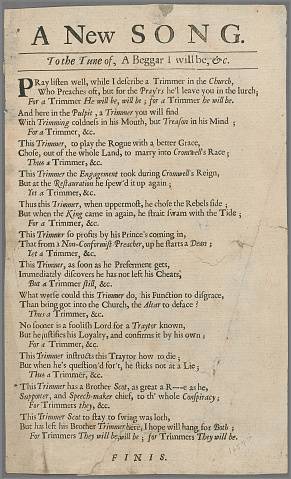 A New SONG.
To the Tune of, A Beggar I will be, &c.
PRay listen well, while I describe a Trimmer in the Church,
Who Preaches oft, but for the Pray'rs he'l leave you in the lurch;
For a Trimmer He will be, will be; for a Trimmer he will be.
And here in the Pulpit, a Trimmer you will find
With Trimming coldness in his Mouth, but Treason in his Mind;
For a Trimmer, &c.
This Trimmer, to play the Rogue with a better Grace,
Chose, out of the whole Land, to marry into Cromwell's Race;
Thus a Trimmer, &c.
This Trimmer the Engagement took during Cromwell's Reign,
But at the Restauration he spew'd it up again;
Yet a Trimmer, &c.
Thus this Trimmer, when uppermost, he chose the Rebels side;
But when the King came in again, he strait swam with the Tide;
For a Trimmer, &c.
This Trimmer so profits by his Prince's coming in,
That from a Non-Conformist Preacher, up he starts a Dean;
Yet a Trimmer, &c.
This Trimmer, as soon as he Preferment gets,
Immediately discovers he has not left his Cheats;
But a Trimmer still, &c.
What worse could this Trimmer do, his Function to disgrace,
Than being got into the Church, the Altar to deface?
Thus a Trimmer, &c.
No sooner is a foolish Lord for a Traytor known,
But he justifies his Loyalty, and confirms it by his own;
For a Trimmer, &c.
This Trimmer instructs this Traytor how to die;
But when he's question'd for't, he sticks not at a Lie;
Thus a Trimmer, &c.
* This Trimmer has a Brother Scot, as great a R---e as he,
Supporter, and Speech-maker chief, to th' whole Conspiracy;
For Trimmers they, &c.
This Trimmer Scot to stay to swing was loth,
But has left his Brother Trimmer here, I hope will hang for Both;
For Trimmers They will be, will be; for Trimmers They will be.
FINIS.